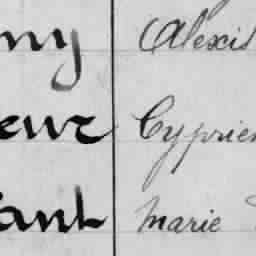 ny Alexis
eur Cyprien
ant Marie